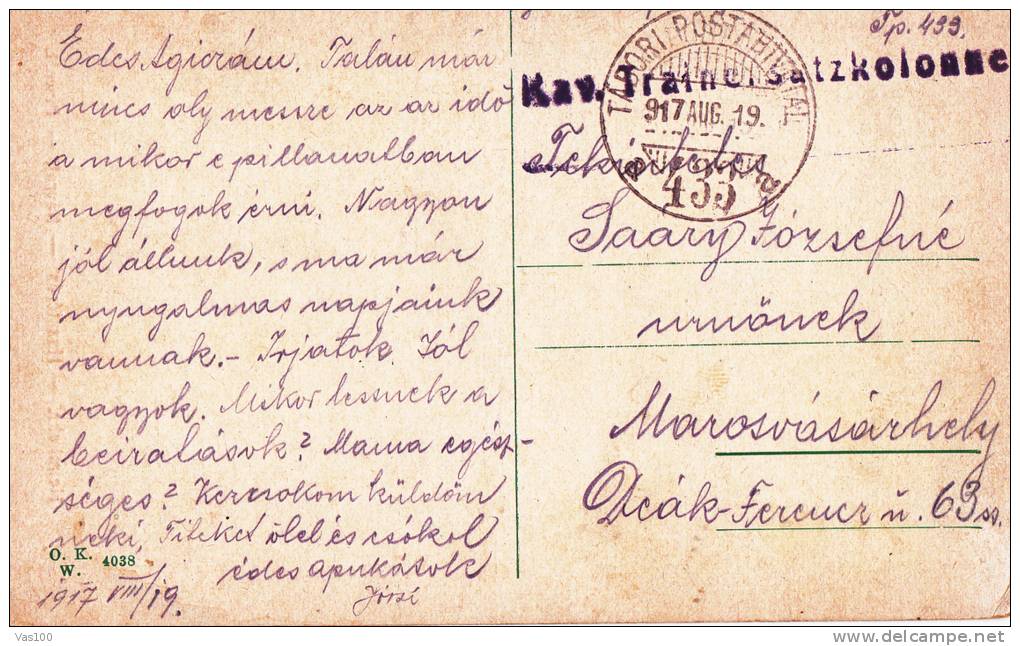 Édes Agiczám. Talán már
nincs oly messze az az idő
a mikor e pillanatban
megfogok érni. Nagyon
jól állunk, s ma már
nyugalmas napjaink
vannak. - Irjatok. Jól
vagyok. Mikor lesznek a
beiratások? Mama egész-
séges? Kézcsókom küldöm
neki, Titeket ölel és csókol
édes apukátok
Józsi
1917 VIII/19.
O. K. 4038
W.
Tp. 433.
Kav. Traine satzkolonne
TÁBORI POSTAHIVATAL
917 AUG. 19.
433
Tekintetes
Saáry Józsefné
urnőnek
Marosvásárhely
Deák-Ferencz u. 63 sz.
Vas100
www.delcampe.net